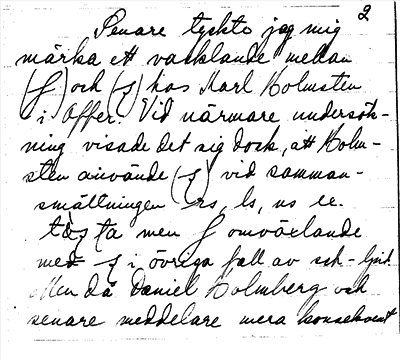 2
Senare tyckte jag mig
märka ett vacklande mellan
(ʃ) och (ʂ) hos Karl Holmsten
i Offer. Vid närmare undersök-
ning visade det sig dock, att Holm-
sten använde (ʂ) vid samman-
smältningen rs, ls, ns
men ʃ omväxlande
med ʂ i övriga fall av sch-ljud.
Men då Daniel Holmberg och
senare meddelare mera konsekvent